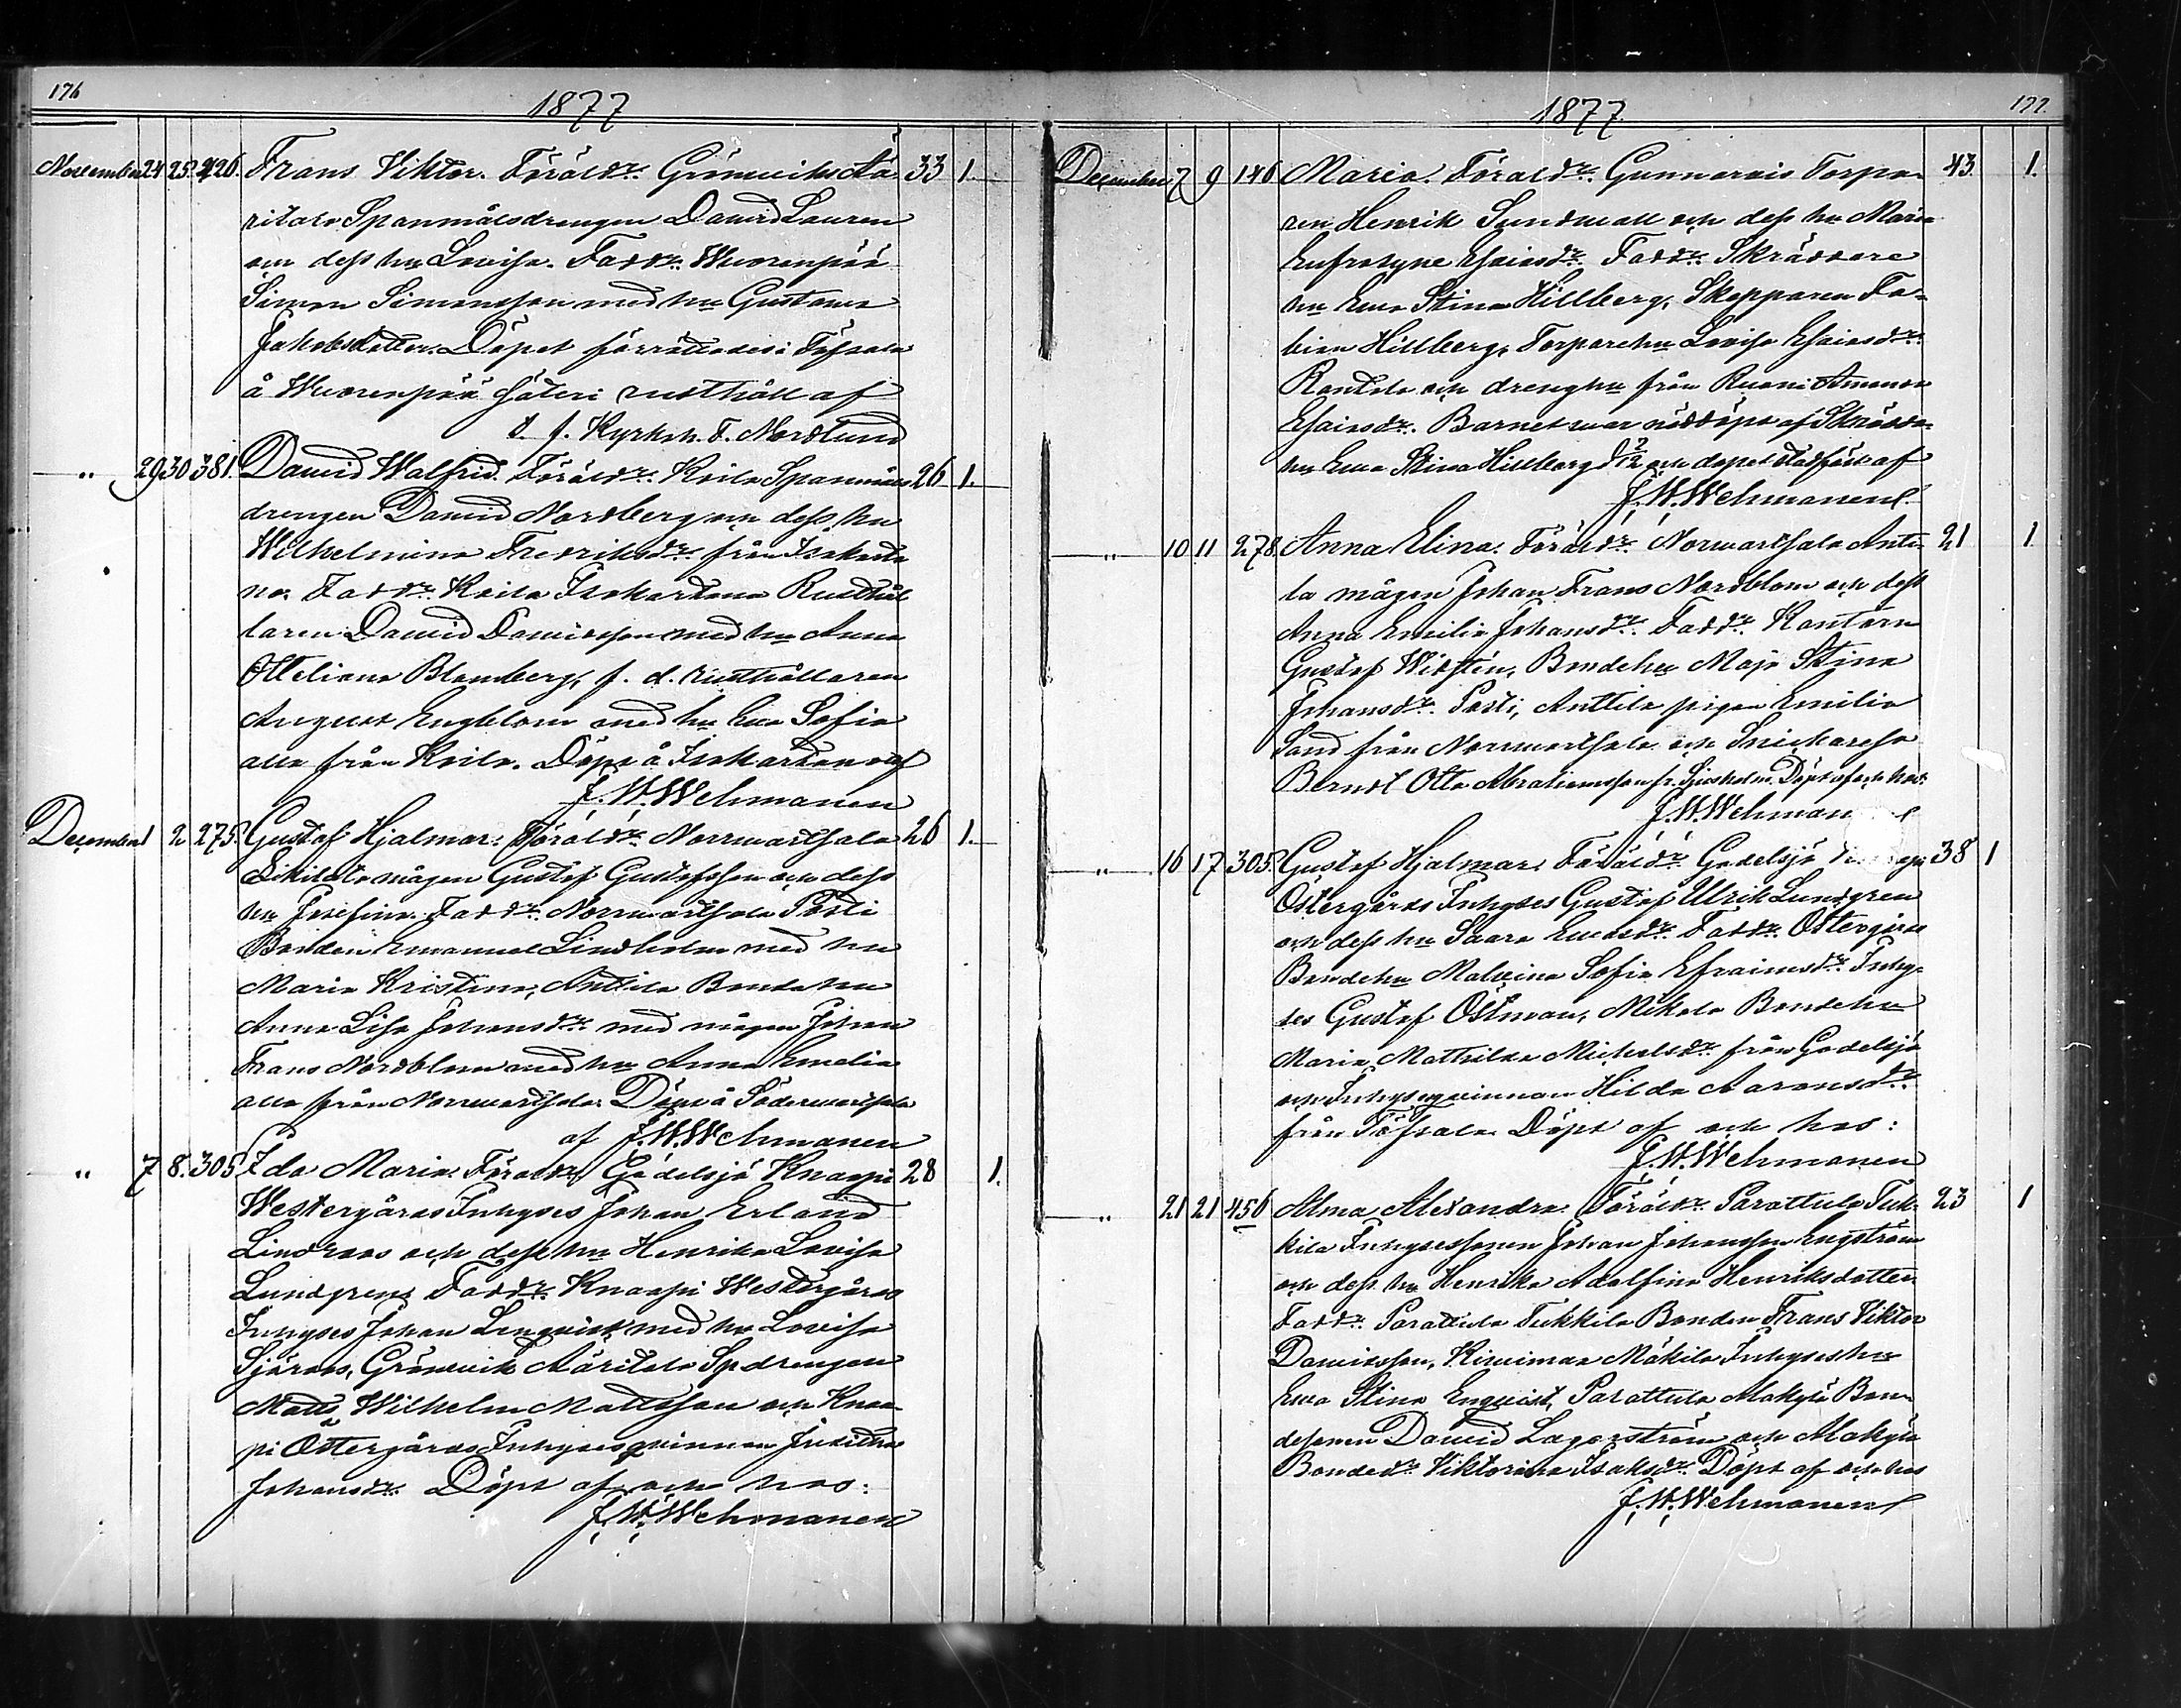 176
1877
November 24 25 426. Frans Viktor. Föräldr. Grönwiks Aä 33 1.
ritalo Spanmålsdrengen David Lauren
och dess hu Lovisa. Faddr. Wuorenpää
Simon Simonsson med hu Gustava
Jakobsdotter. Döpet förrättades i Töfsala
å Wuorenpää Säteri rusthåll af
t. f. Kyrkoh. F. Nordlund
" 29 30 381. David Walfrid. Föräldr. Keila Spanmåls 26 1.
drengen David Nordberg och dess hu
Wilhelmina Fredriksdr. från Isokarta
no. Faddr. Keila Isokartano Rusthål
laren David Davidsson med hu Anna
Otteliana Blomberg, f. d. rusthållaren
August Engblom med hu Eva Sofia
alla från Keila. Döpt å Isokartano af
J. W. Wehmanen
December 1 2 275. Gustaf Hjalmar. Föräldr. Norrwartsala 26 1.
mågen Gustaf Gustafsson och dess
hu Josefina. Faddr. Norrwartsala Posti
Bonden Emanuel Lindholm med hu
Maria Kristina, Anttila Bonde hu
Anna Lisa Johansdr. med mågen Johan
Frans Nordblom med hu Anna Emelia
alla från Norrwartsala. Döpt å Söderwartsala
af J. W. Wehmanen
" 7 8. 305. Ida Maria. Föräldr. Gödelsjö Knaapi 28 1.
Westergårds Inhyses Johan Erland
Lindroos och dess hu Henrika Lovisa
Lundgren. Faddr. Knaapi Westergårds
Inhyses Johan Lenqvist med hu Lovisa
Sjöroos, Grönwik Aäritalo Spdrengen
Matts Wilhelm Mattsson och Knaa
pi Östergårds Inhysesqvinnan
Johansdr. Döpt af och hos:
J. W. Wehmanen
177.
1877.
December 7 9 146 Maria. Föräldr. Gunnarais Torpa- 43. 1.
ren Henrik Sundwall och dess hu Maria
Eufrosyne Esaiasdr. Faddr. Skräddare
hu Eva Stina Hillberg, Skepparen Fa-
bian Hillberg, Torparehu Lovisa Esaiasdr.
Rantala och drenghu från Ruoni Amanda
Esaiasdr. Barnet war nöddöpt af Skrädda-
hu Eva Stina Hillberg och döpet stadfäst af
J. W. Wehmanen.
" 10 11 278. Anna Elina. Föräldr. Norrwartsala Antti- 21 1
la mågen Johan Frans Nordblom och dess
Anna Emilia Johansdr. Faddr. Kantorn
Gustaf Widstén, Bondehu Maja Stina
Johansdr. Posti, Anttila pigan Emilia
Sand från Norrwartsala och Snickareso
Berndt Otto Abrahamsson fr. Döpt af och hos:
J. W. Wehman
" 16 17 305. Gustaf Hjalmar. Föräldr. Gödelsjö 38 1
Östergårds Inhyses Gustaf Ulrik Lundgren
och dess hu Saara Faddr. Östergårds
Bondehu Malvina Sofia Efraimsdr. Inhy-
ses Gustaf Östman, Mikola Bondehu
Maria Mathilda Michelsdr. från Gödelsjö
och Inhysesqvinnan Hilda Aaronsdr.
från Töfsala. Döpt af och hos:
J. W. Wehmanen
" 21 21 456 Alma Alexandra. Föräldr. Parattula Tuk- 23 1
kila Inhysessonen Johan Johansson Engström
och dess hu Henrika Adolfina Henriksdotter
Faddr. Parattula Tukkila Bonden Frans Viktor
Davidsson, Kiwimaa Mäkilä Inhyseshu
Eva Stina Enqvist, Parattula Mäkylä Bon-
desonen David Lagerström och Mäkylä
Bondedr. Viktorina Isaksdr. Döpt af och hos
J. W. Wehmanen